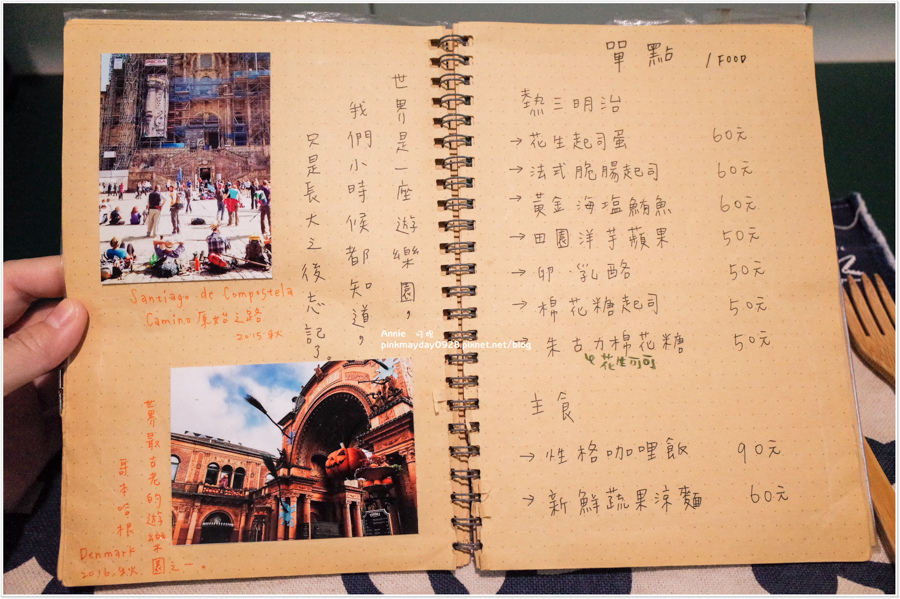 世界是一座遊樂園，
我們小時候都知道，
只是長大之後忘記了。
Santiago de Compostela
Camino 原始之路
2015 秋
世界最古老的遊樂園之一。
哥本哈根
Denmark
2016. 秋
單點 / FOOD
熱三明治
→ 花生起司蛋 60元
→ 法式脆腸起司 60元
→ 黃金海塩鮪魚 60元
→ 田園洋芋蘋果 50元
→ 卵・乳酪 50元
→ 棉花糖起司 50元
→ 朱古力棉花糖 50元
花生可可
主食
→ 性格咖哩飯 90元
→ 新鮮蔬果涼麵 60元
Annie
pinkmayday0928.pixnet.net/blog